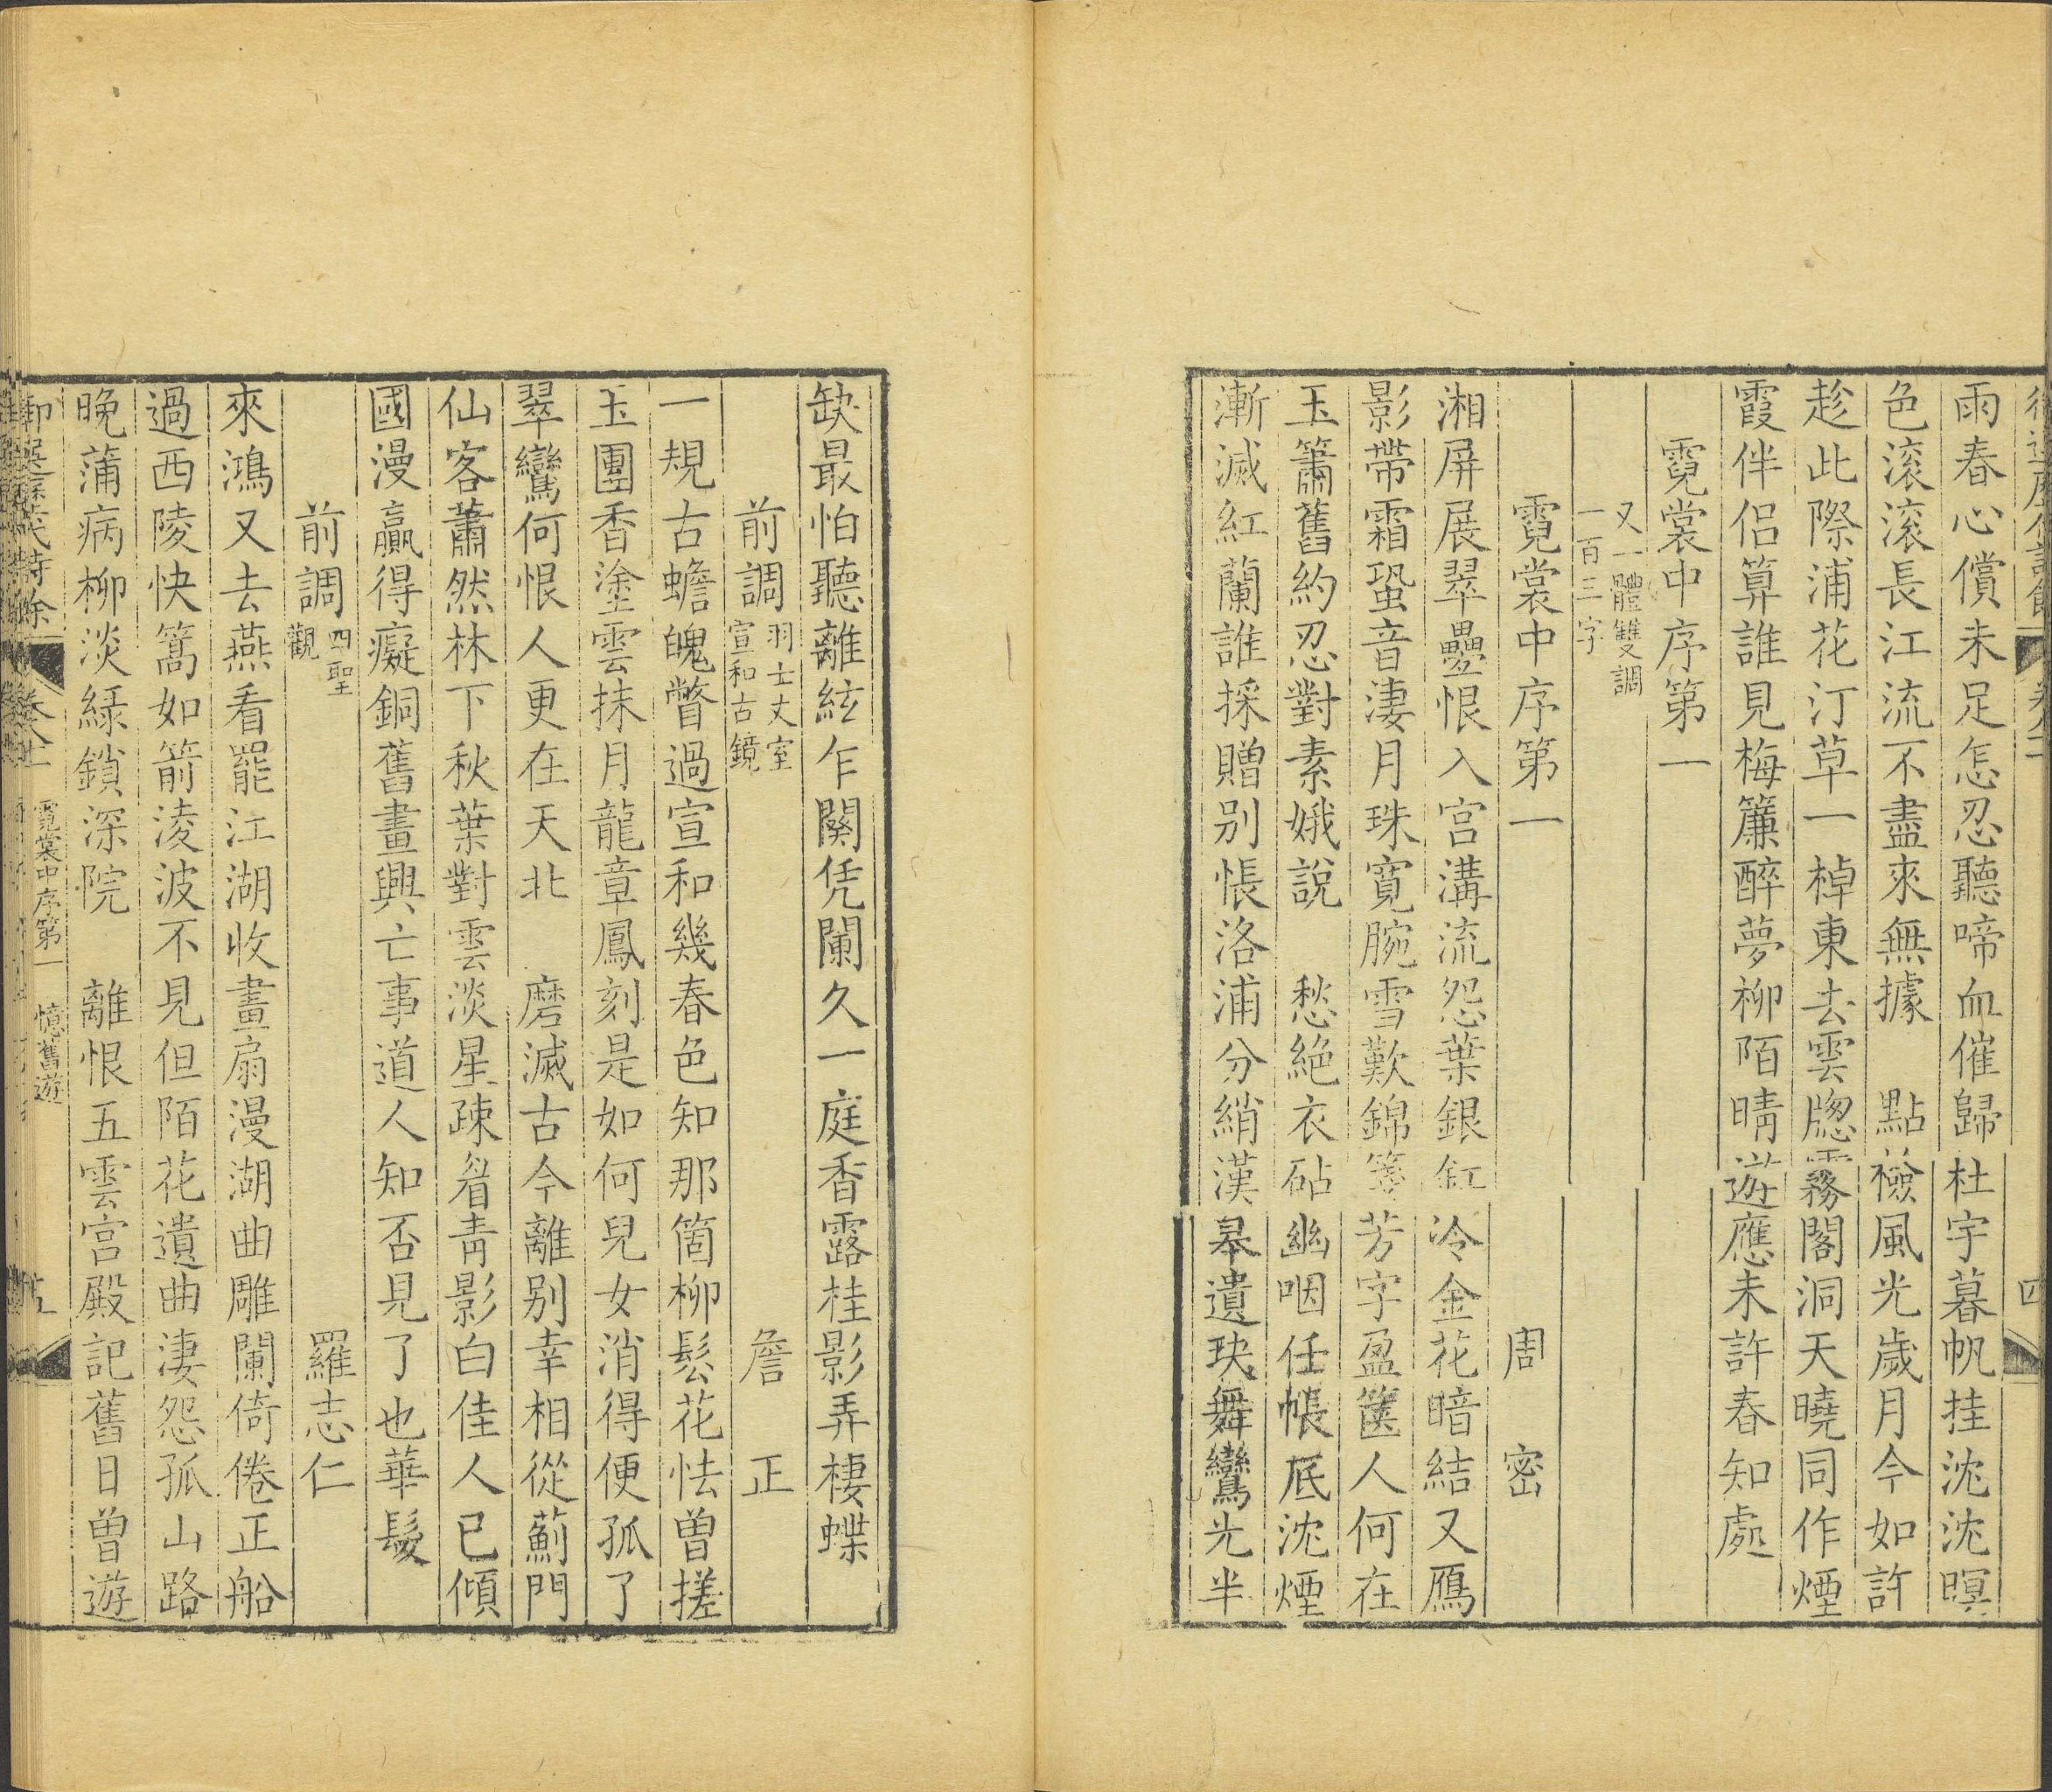 雨春心償未足怎忍聽啼血催歸杜宇暮帆挂沈沈暝
色滾滾長江流不盡來無據　點檢風光歲月今如許
趁此際浦花汀草一棹東去雲牕霧閣洞天曉同作煙
霞伴侶算誰見梅簾醉夢柳陌晴遊應未許春知處
霓裳中序第一
又一體雙調
一百三字
霓裳中序第一　周密
湘屏展翠疊恨入宮溝流怨葉銀釭冷金花暗結又鴈
影帶霜蛩音淒月珠寬腕雪歎錦箋芳字盈篋人何在
玉簫舊約忍對素娥說　愁絕衣砧幽咽任帳底沈煙
漸滅紅蘭誰採贈別悵洛浦分綃漢皋遺玦舞鸞光半
缺最怕聽離絃乍闋凭闌久一庭香露桂影弄棲蝶
前調　羽士丈室
宣和古鏡　詹正
一規古蟾魄瞥過宣和幾春色知那箇柳鬆花怯曾搓
玉團香塗雲抹月龍章鳳刻是如何兒女消得便孤了
翠鸞何恨人更在天北　磨滅古今離別幸相從薊門
仙客蕭然林下秋葉對雲淡星疎眉青影白佳人已傾
國漫贏得癡銅舊畫興亡事道人知否見了也華髮
前調　四聖
觀　羅志仁
來鴻又去燕看罷江湖收畫扇漫湖曲雕闌倚倦正船
過西陵快篙如箭淩波不見但陌花遺曲淒怨孤山路
晚蒲病柳淡綠鎖深院　離恨五雲宮殿記舊日曾遊
霓裳中序第一　憶舊遊